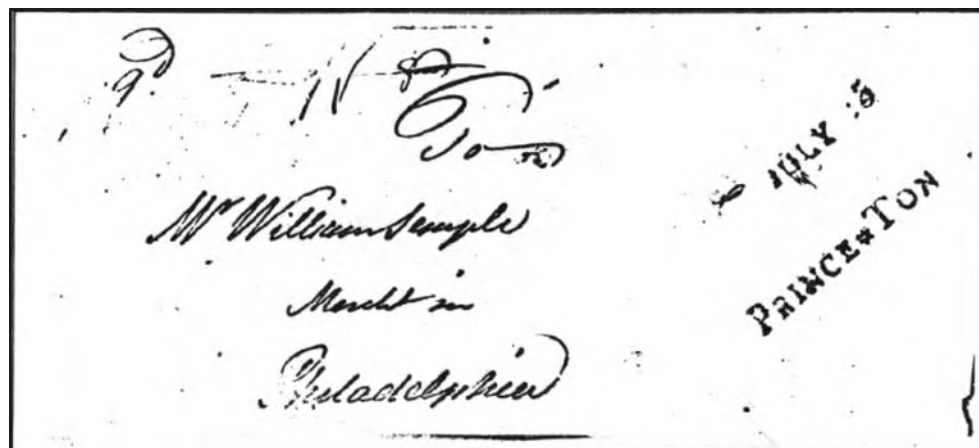 9d
To
Mr William Semple
Mercht in
Philadelphia
JULY
PRINCE*TON